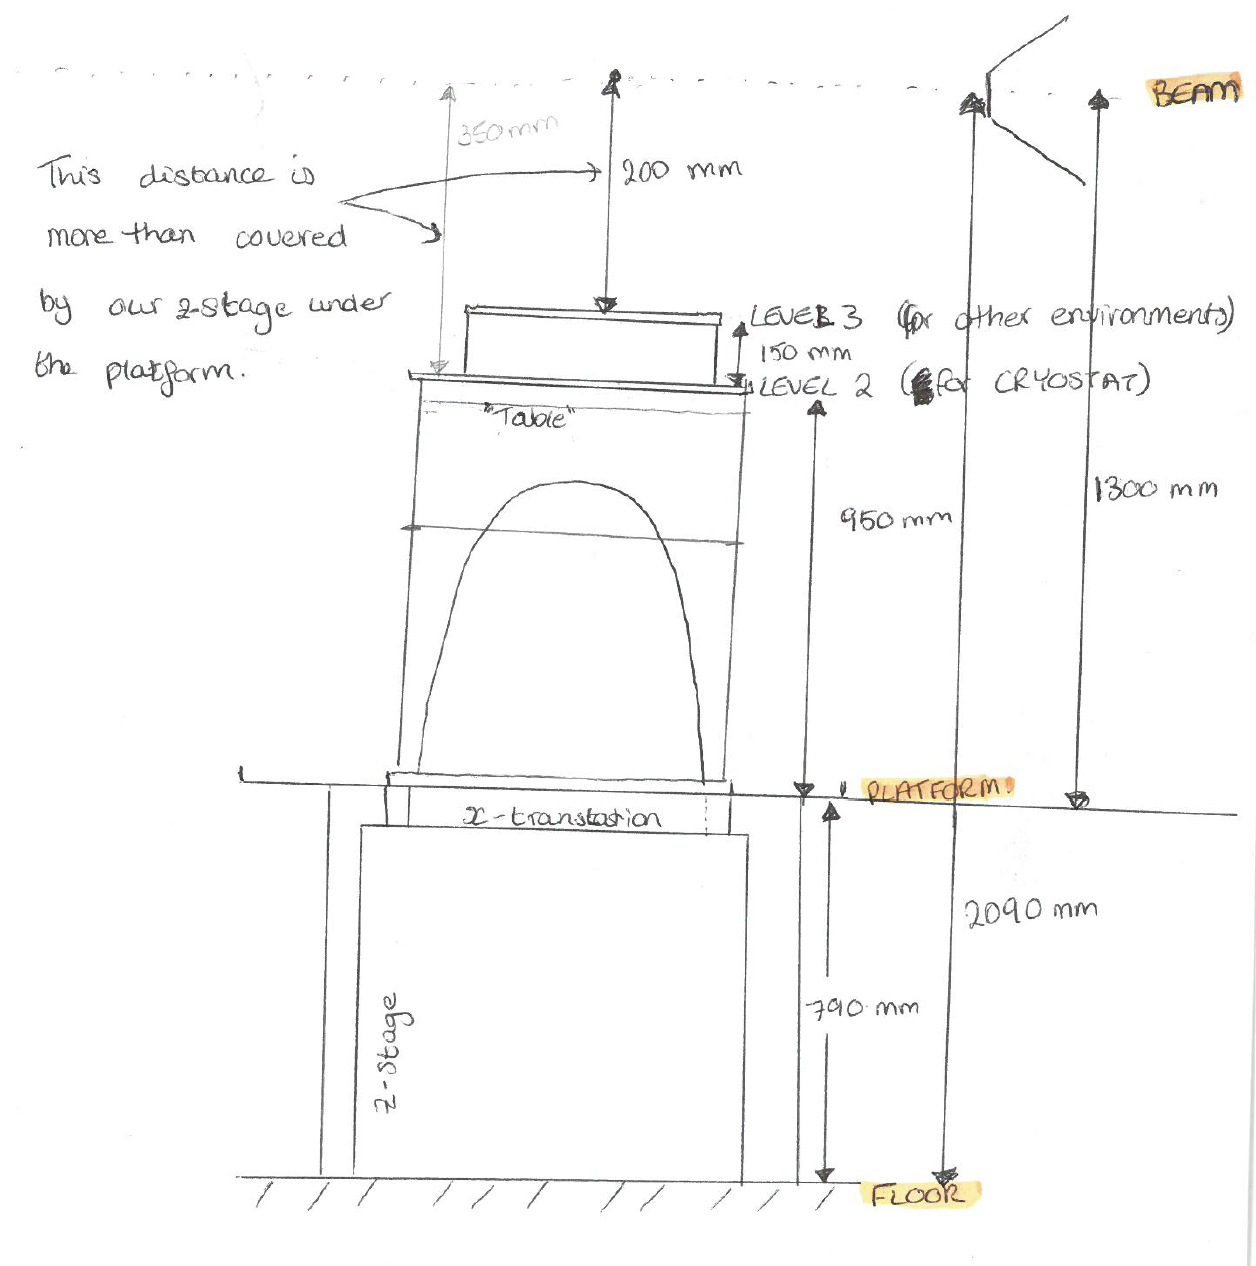 BEAM
350mm
200 mm
This distance is
more than covered
by our z-stage under
the platform.
LEVEL 3 (for other environments)
150 mm
LEVEL 2 (for CRYOSTAT)
"Table"
950 mm
1300 mm
PLATFORM.
x-translation
2090 mm
790 mm
z-stage
FLOOR